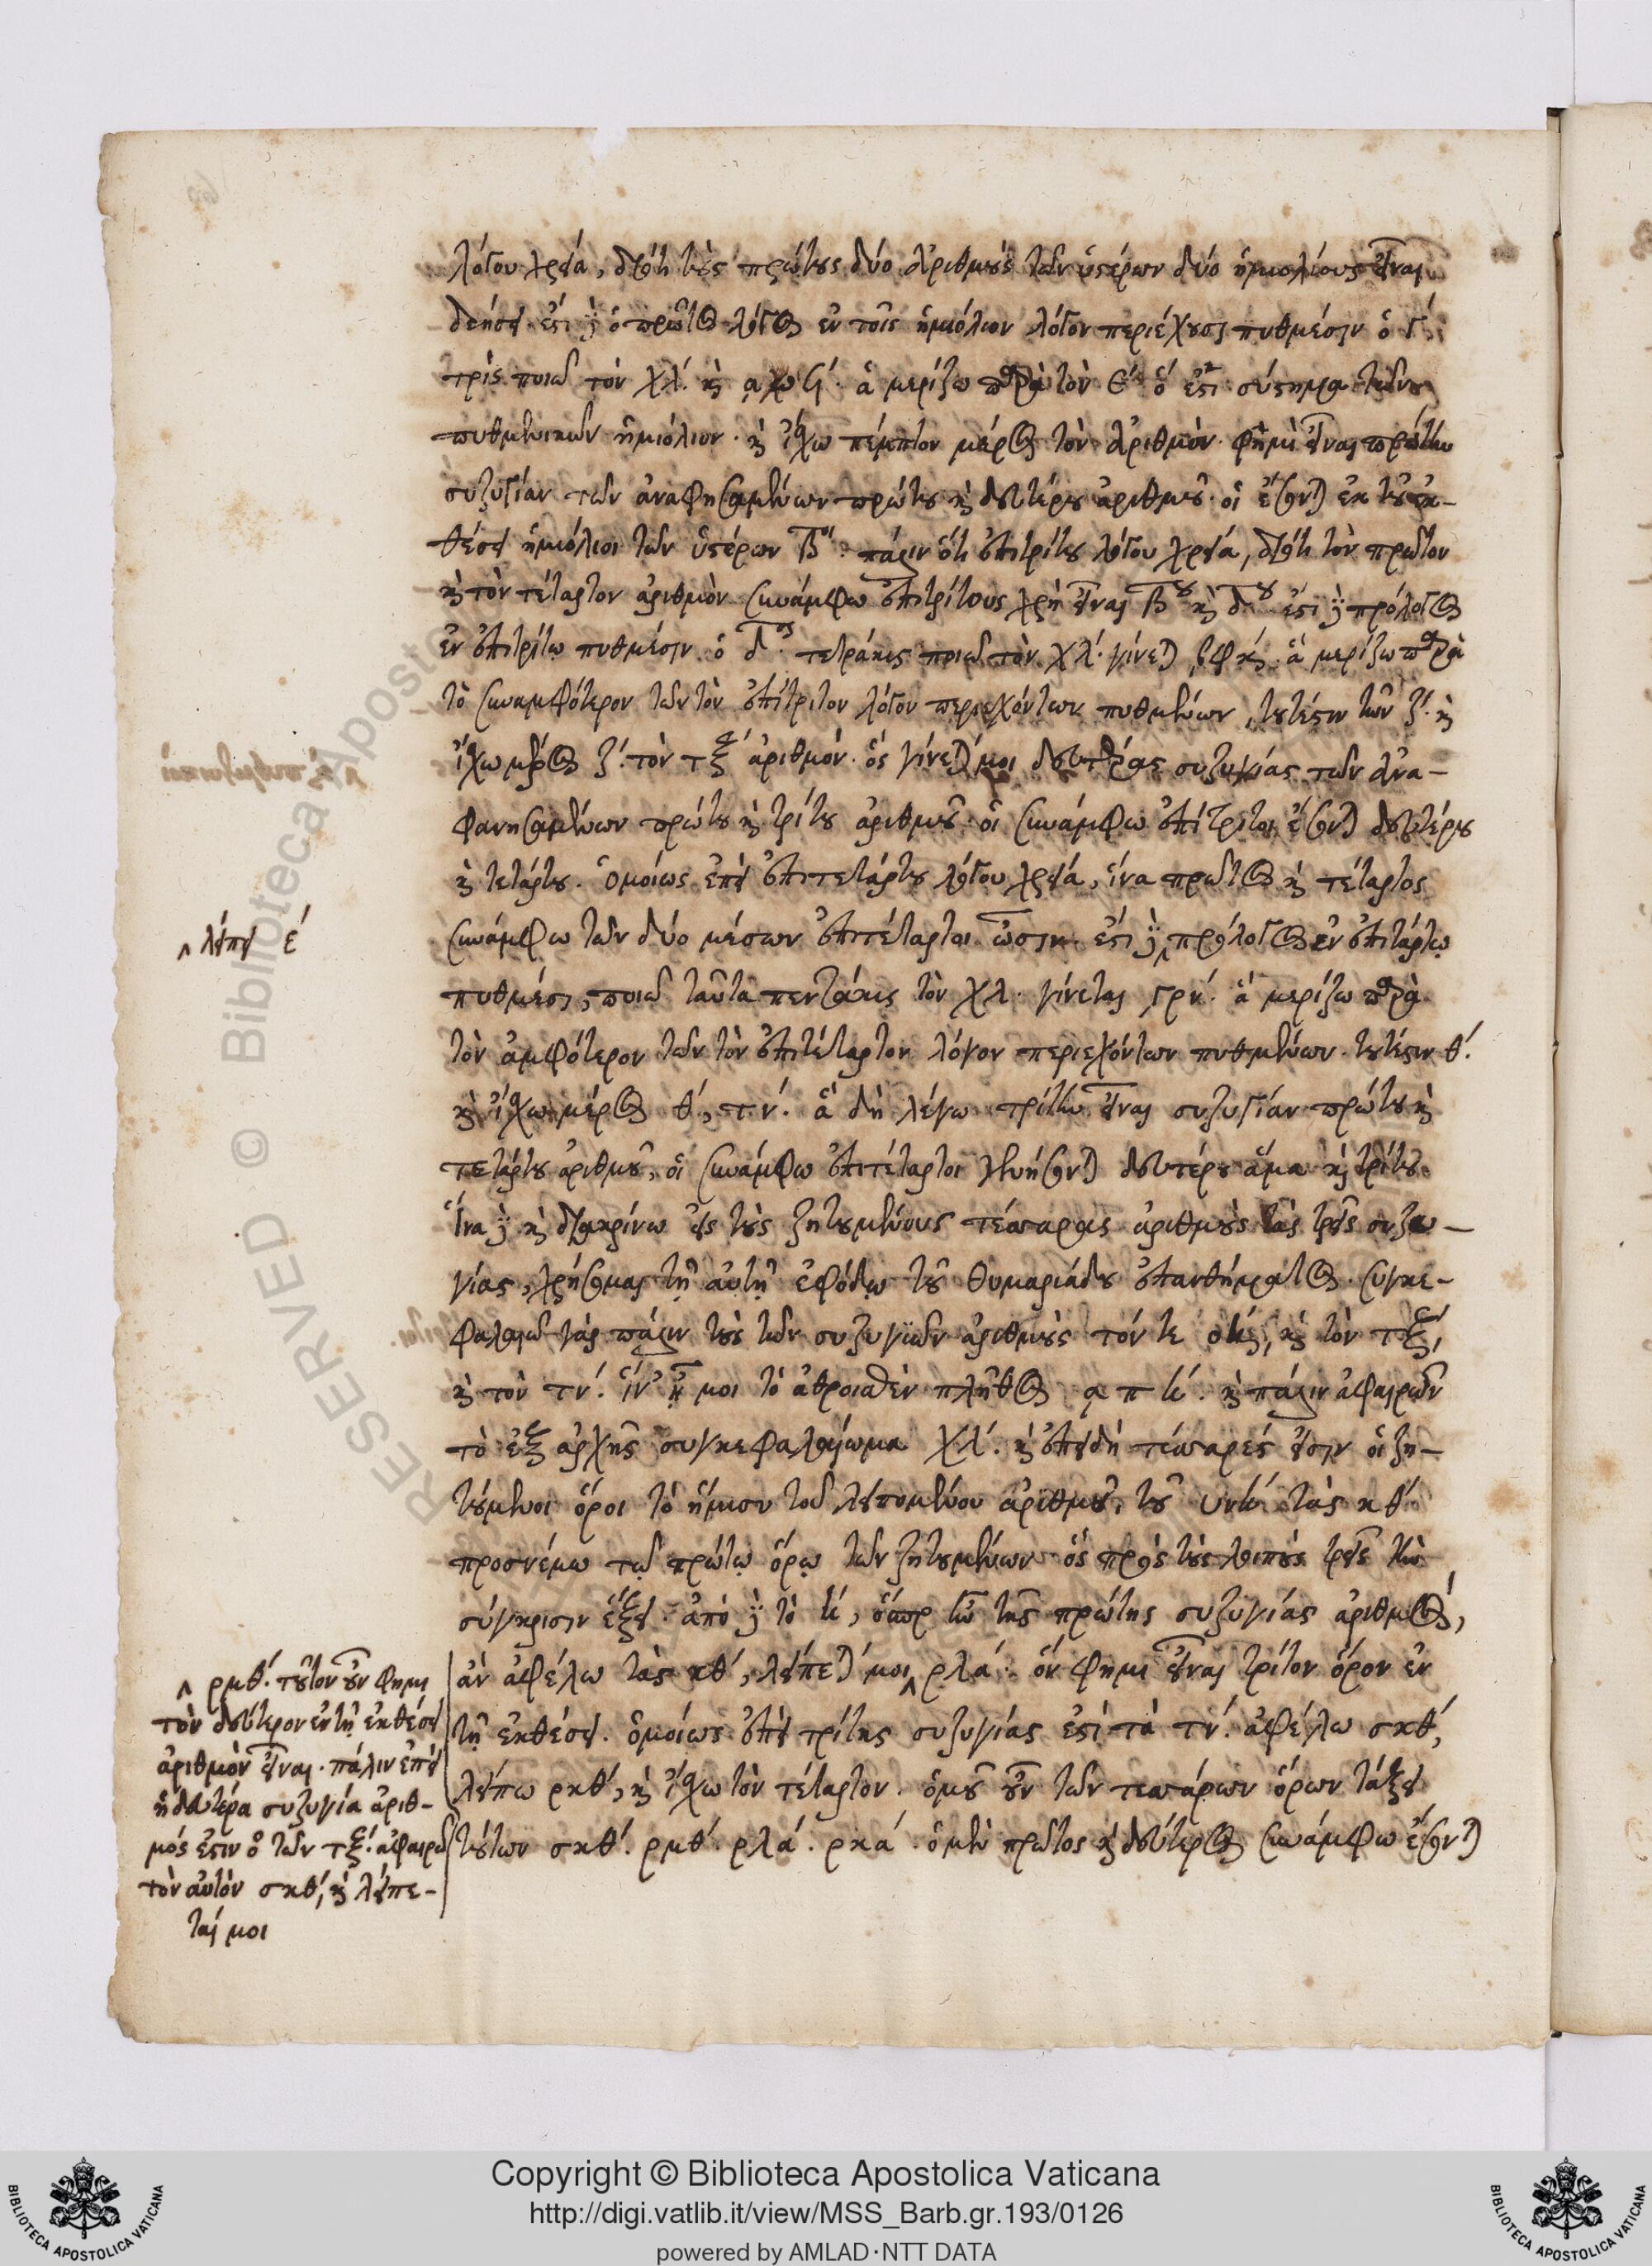 λόγου χρεία, διότι τοὺς πρώτους δύο ἀριθμοὺς τῶν ὑστέρων δύο ἡμιολίους εἶναι
δεήσει. ἔστι δὲ ὁ πρῶτος λόγος ἐν τοῖς ἡμιόλιον λόγον περιέχουσι πυθμέσιν ὁ γ΄.
τρὶς ποιῶ τὸν χλ΄. καὶ ἃ μερίζω παρὰ τὸν ε΄. ὅ ἐστι σύστημα τῶν
πυθμενικῶν ἡμιόλιον. καὶ ἔχω πέμπτον μέρος τὸν ἀριθμὸν. φημὶ εἶναι πρώτην
συζυγίαν τῶν ἀναφησαμένων πρώτου καὶ δευτέρου ἀριθμοῦ. οἳ ἔσονται ἐκ τοῦ ἐκ-
θέσει ἡμιόλιοι τῶν ὑστέρων β΄. πάλιν ὅτι ἐπιτρίτου λόγου χρεία, διότι τὸν πρῶτον
καὶ τὸν τέταρτον ἀριθμὸν συνάμφω ἐπιτρίτους χρὴ εἶναι βου καὶ δου. ἔστι δὲ πρόλογος
ἐν ἐπιτρίτῳ πυθμέσιν ὁ δος. τετράκις ποιῶ τὸν χλ΄. γίνεται ͵βφκ΄. ἃ μερίζω παρὰ
τὸ συναμφότερον τῶν τὸν ἐπίτριτον λόγον περιεχόντων πυθμένων, τουτέστιν τῶν ζ΄. καὶ
ἔχω μέρος ζ΄. τὸν τξ΄ ἀριθμόν. ὅς γίνεταί μοι δευτέρας συζυγίας τῶν ἀνα-
φανησαμένων πρώτου καὶ τρίτου ἀριθμοῦ. οἳ συνάμφω ἐπίτριτοι ἔσονται δευτέρου
καὶ τετάρτου. ὁμοίως ἐπεὶ ἐπιτετάρτου λόγου χρεία, ἵνα πρῶτος καὶ τέταρτος
συνάμφω τῶν δύο μέσων ἐπιτέταρτοι ὦσιν. ἔστι δὲ ‸ πρόλογος ἐν ἐπιτάρτῳ
‸ λείπει ε΄
πυθμέσι, ποιῶ ταῦτα πεντάκις τὸν χλ. γίνεται ͵γρν΄. ἃ μερίζω παρὰ
τὸν ἀμφότερον τῶν τὸν ἐπιτέταρτον λόγον περιεχόντων πυθμένων. τουτέστιν θ΄.
καὶ ἔχω μέρος θ΄, τν΄. ἃ δὴ λέγω τρίτην εἶναι συζυγίαν πρώτου καὶ
τετάρτου ἀριθμοῦ, οἳ συνάμφω ἐπιτέταρτοι γενήσονται δευτέρου ἅμα καὶ τρίτου.
ἵνα δὲ καὶ διακρίνω εἰς τοὺς ζητουμένους τέσσαρας ἀριθμοὺς τὰς τρεῖς συζυ-
γίας, χρήσομαι τῇ αὐτῇ ἐφόδῳ τοῦ θυμαριάδου ἐπανθήματος. συγκε-
φαλαιῶ γὰρ πάλιν τοὺς τῶν συζυγιῶν ἀριθμοὺς τόν τε , καὶ τὸν τξ΄,
καὶ τὸν τν΄. ἵν᾽ ᾖ μοι τὸ ἀθροισθὲν πλῆθος ͵απ . καὶ πάλιν ἀφαιρῶν
τὸ ἐξ ἀρχῆς συγκεφαλαίωμα χλ΄. καὶ ἐπειδή τέσσαρές εἰσιν οἱ ζη-
τούμενοι ὅροι τὸ ἥμισυ τοῦ λειπομένου ἀριθμοῦ, τοῦ τὰς κθ΄
προσνέμω τῷ πρώτῳ ὅρῳ τῶν ζητουμένων ὃς πρὸς τοὺς λοιποὺς τρεῖς τὴν
σύγκρισιν ἕξει. ἀπὸ δὲ τὸ , ὅπερ ἦν τῆς πρώτης συζυγίας ἀριθμός,
ἂν ἀφέλω τὰς κθ΄, λείπεταί μοι ‸ ρλά. ὅν φημι εἶναι τρίτον ὅρον ἐν
τῇ ἐκθέσει. ὁμοίως ἐπεὶ τρίτης συζυγίας ἐστὶ τὰ τν΄. ἀφέλω σκθ΄,
λείπω ρκθ΄, καὶ ἔχω τὸν τέταρτον. ὁμοῦ οὖν τῶν τεσσάρων ὅρων τάξει
τούτων σκθ΄. ρμθ΄. ρλά. ρκά. ὁ μὲν πρῶτος καὶ δεύτερος συνάμφω ἔσονται
‸ ρμθ΄. τοῦτον οὖν φημι
τὸν δεύτερον ἐν τῇ ἐκθέσει
ἀριθμὸν εἶναι. πάλιν ἐπεὶ
ἡ δευτέρα συζυγία ἀριθ-
μός ἐστιν ὁ τῶν τξ΄. ἀφαιρῶ
τὸν αὐτὸν σκθ΄, καὶ λείπε-
ταί μοι
RESERVED © Biblioteca Apostolica
Copyright © Biblioteca Apostolica Vaticana
http://digi.vatlib.it/view/MSS_Barb.gr.193/0126
powered by AMLAD·NTT DATA
BIBLIOTECA APOSTOLICA VATICANA
BIBLIOTECA APOSTOLICA VATICANA